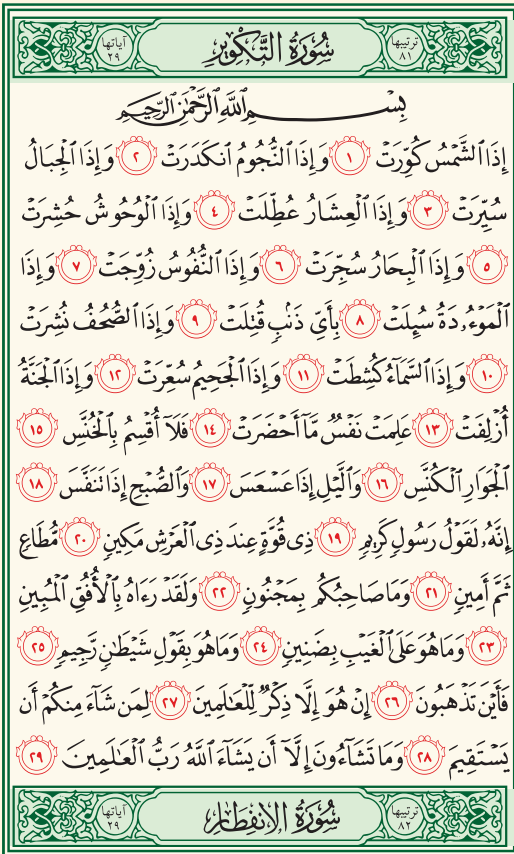 ترتيبها ٨١ سُورَةُ التَّكْوِيرِ آياتها ٢٩
بِسْمِ اللَّهِ الرَّحْمَٰنِ الرَّحِيمِ
إِذَا ٱلشَّمْسُ كُوِّرَتْ ١ وَإِذَا ٱلنُّجُومُ ٱنكَدَرَتْ ٢ وَإِذَا ٱلْجِبَالُ
سُيِّرَتْ ٣ وَإِذَا ٱلْعِشَارُ عُطِّلَتْ ٤ وَإِذَا ٱلْوُحُوشُ حُشِرَتْ
٥ وَإِذَا ٱلْبِحَارُ سُجِّرَتْ ٦ وَإِذَا ٱلنُّفُوسُ زُوِّجَتْ ٧ وَإِذَا
ٱلْمَوْءُۥدَةُ سُئِلَتْ ٨ بِأَىِّ ذَنۢبٍ قُتِلَتْ ٩ وَإِذَا ٱلصُّحُفُ نُشِرَتْ
١٠ وَإِذَا ٱلسَّمَآءُ كُشِطَتْ ١١ وَإِذَا ٱلْجَحِيمُ سُعِّرَتْ ١٢ وَإِذَا ٱلْجَنَّةُ
أُزْلِفَتْ ١٣ عَلِمَتْ نَفْسٌ مَّآ أَحْضَرَتْ ١٤ فَلَآ أُقْسِمُ بِٱلْخُنَّسِ ١٥
ٱلْجَوَارِ ٱلْكُنَّسِ ١٦ وَٱلَّيْلِ إِذَا عَسْعَسَ ١٧ وَٱلصُّبْحِ إِذَا تَنَفَّسَ ١٨
إِنَّهُۥ لَقَوْلُ رَسُولٍ كَرِيمٍ ١٩ ذِى قُوَّةٍ عِندَ ذِى ٱلْعَرْشِ مَكِينٍ ٢٠ مُّطَاعٍ
ثَمَّ أَمِينٍ ٢١ وَمَا صَاحِبُكُم بِمَجْنُونٍ ٢٢ وَلَقَدْ رَءَاهُ بِٱلْأُفُقِ ٱلْمُبِينِ
٢٣ وَمَا هُوَ عَلَى ٱلْغَيْبِ بِضَنِينٍ ٢٤ وَمَا هُوَ بِقَوْلِ شَيْطَٰنٍ رَّجِيمٍ ٢٥
فَأَيْنَ تَذْهَبُونَ ٢٦ إِنْ هُوَ إِلَّا ذِكْرٌ لِّلْعَٰلَمِينَ ٢٧ لِمَن شَآءَ مِنكُمْ أَن
يَسْتَقِيمَ ٢٨ وَمَا تَشَآءُونَ إِلَّآ أَن يَشَآءَ ٱللَّهُ رَبُّ ٱلْعَٰلَمِينَ ٢٩
ترتيبها ٨٢ سُورَةُ الِانفِطَارِ آياتها ٢٩